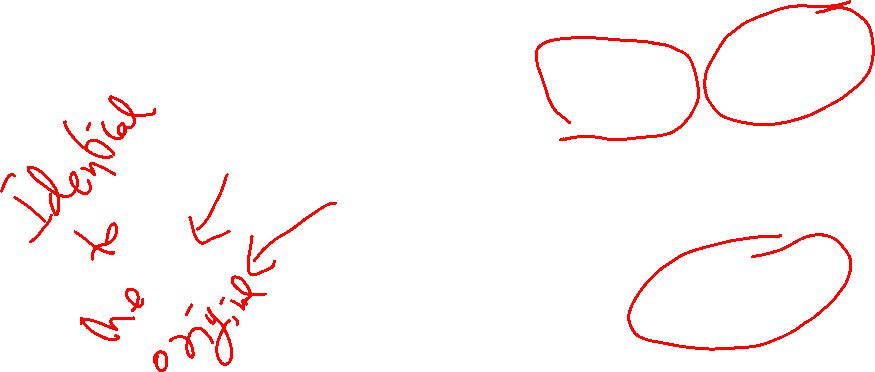 Identical
to
the
original